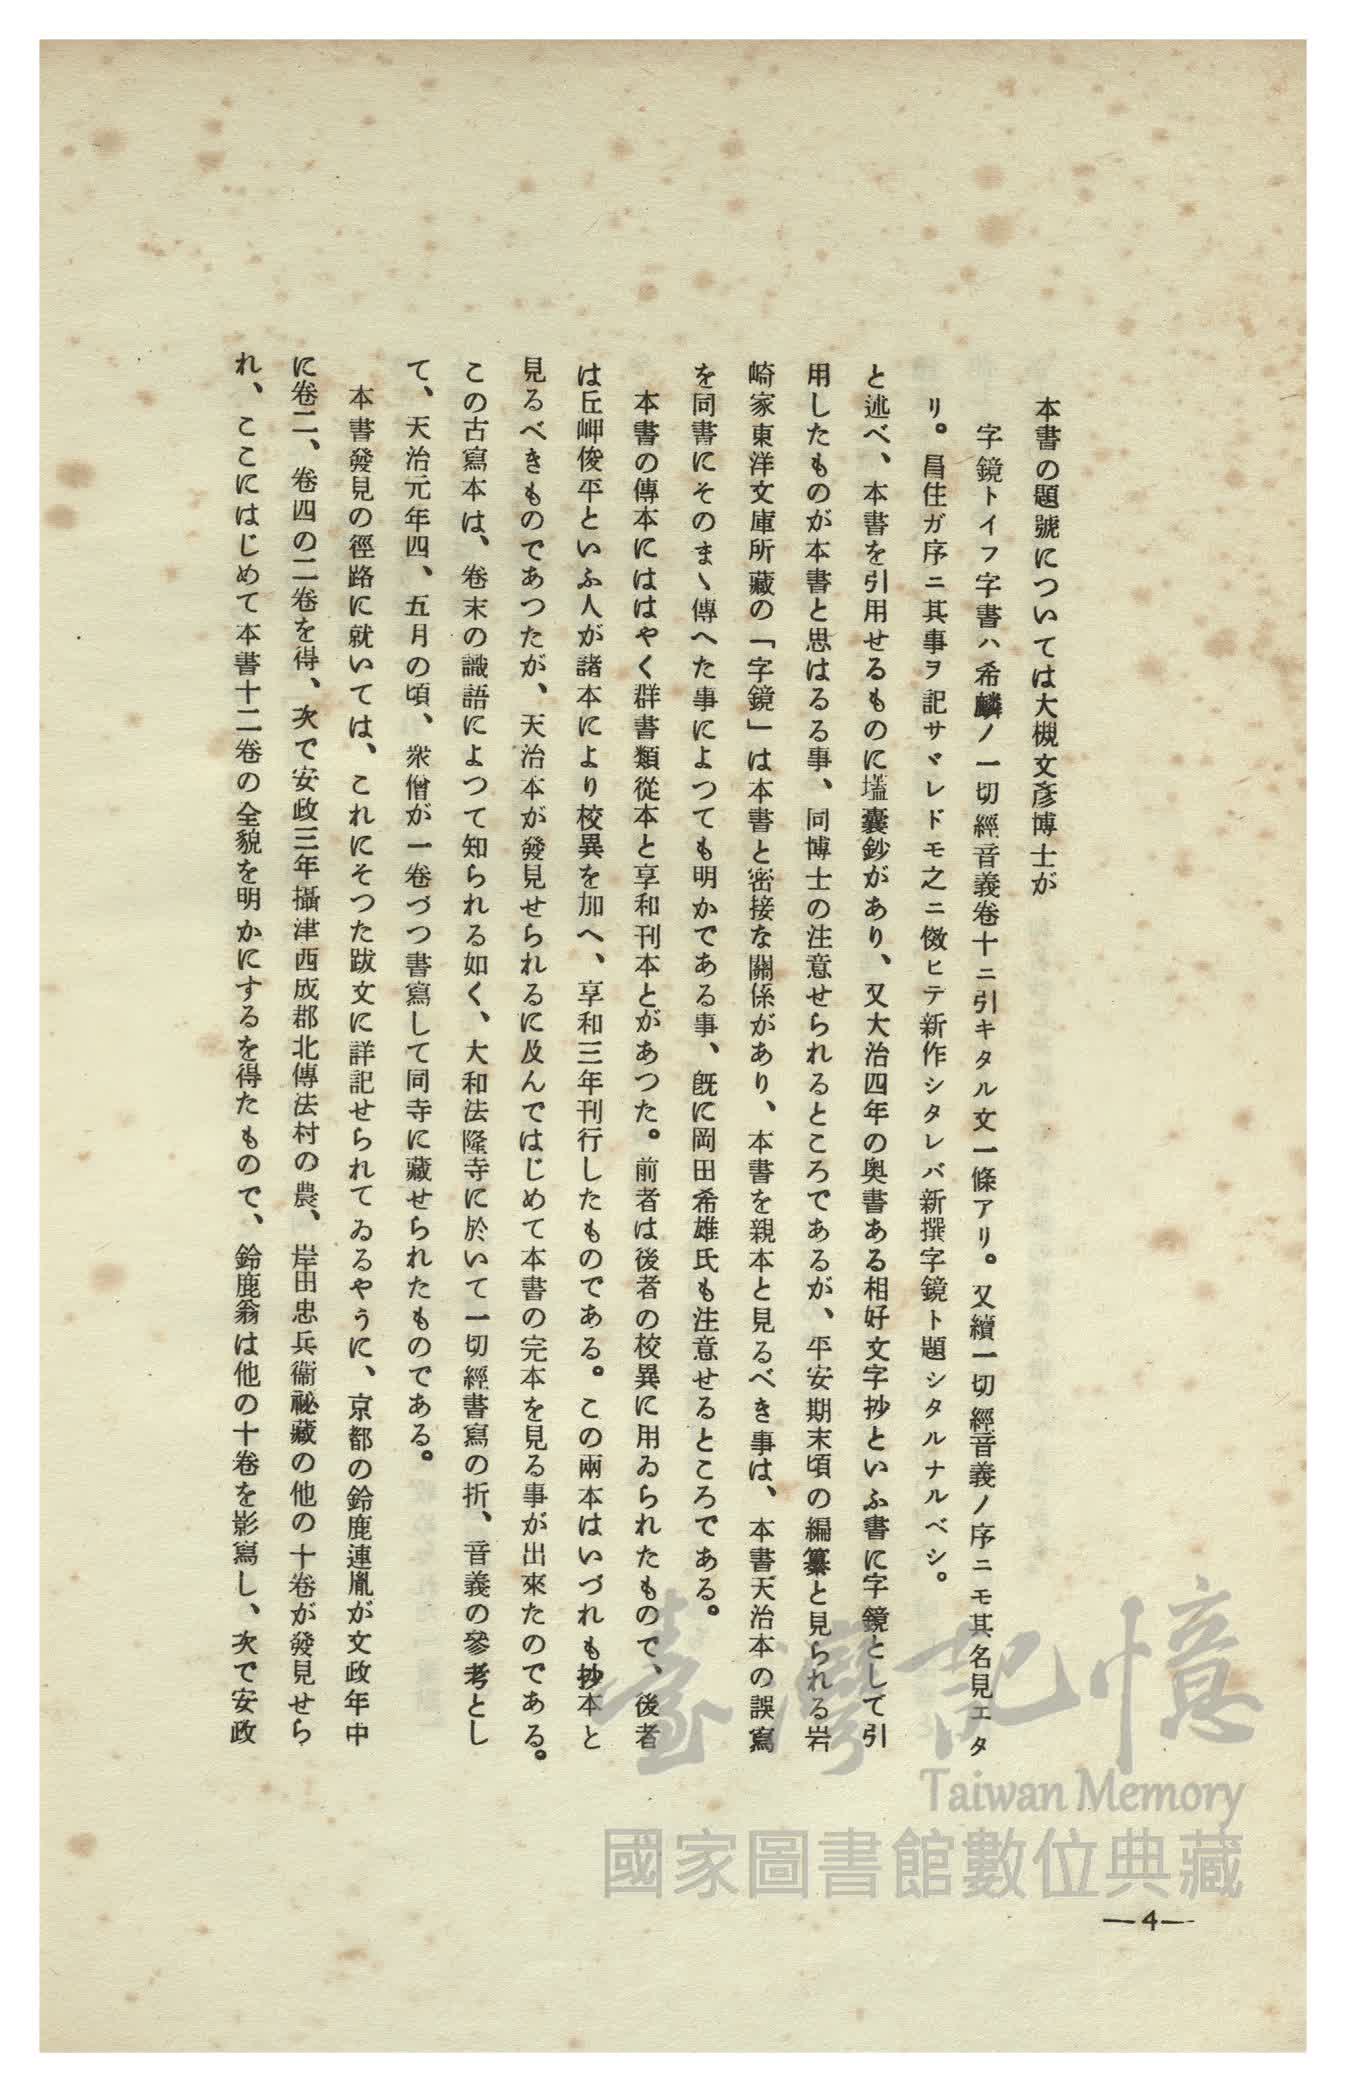 本書の題號については大槻文彥博士が
字鏡トイフ字書ハ希麟ノ一切經音義卷十ニ引キタル文一條アリ。又續一切經音義ノ序ニモ其名見エタ
リ。昌住ガ序ニ其事ヲ記サヾレドモ之ニ傚ヒテ新作シタレバ新撰字鏡ト題シタルナルベシ。
と述べ、本書を引用せるものに壒囊鈔があり、又大治四年の奥書ある相好文字抄といふ書に字鏡として引
用したものが本書と思はるる事、同博士の注意せられるところであるが、平安期末頃の編纂と見られる岩
崎家東洋文庫所藏の「字鏡」は本書と密接な關係があり、本書を親本と見るべき事は、本書天治本の誤寫
を同書にそのまゝ傳へた事によつても明かである事、既に岡田希雄氏も注意せるところである。
本書の傳本にははやく群書類從本と享和刊本とがあつた。前者は後者の校異に用ゐられたもので、後者
は丘岬俊平といふ人が諸本により校異を加へ、享和三年刊行したものである。この兩本はいづれも抄本と
見るべきものであつたが、天治本が發見せられるに及んではじめて本書の完本を見る事が出來たのである。
この古寫本は、卷末の識語によつて知られる如く、大和法隆寺に於いて一切經書寫の折、音義の參考とし
て、天治元年四、五月の頃、衆僧が一卷づつ書寫して同寺に藏せられたものである。
本書發見の徑路に就いては、これにそつた跋文に詳記せられてゐるやうに、京都の鈴鹿連胤が文政年中
に卷二、卷四の二卷を得、次で安政三年攝津西成郡北傳法村の農、岸田忠兵衞祕藏の他の十卷が發見せら
れ、ここにはじめて本書十二卷の全貌を明かにするを得たもので、鈴鹿翁は他の十卷を影寫し、次で安政
臺灣記憶
Taiwan Memory
國家圖書館數位典藏
—4—